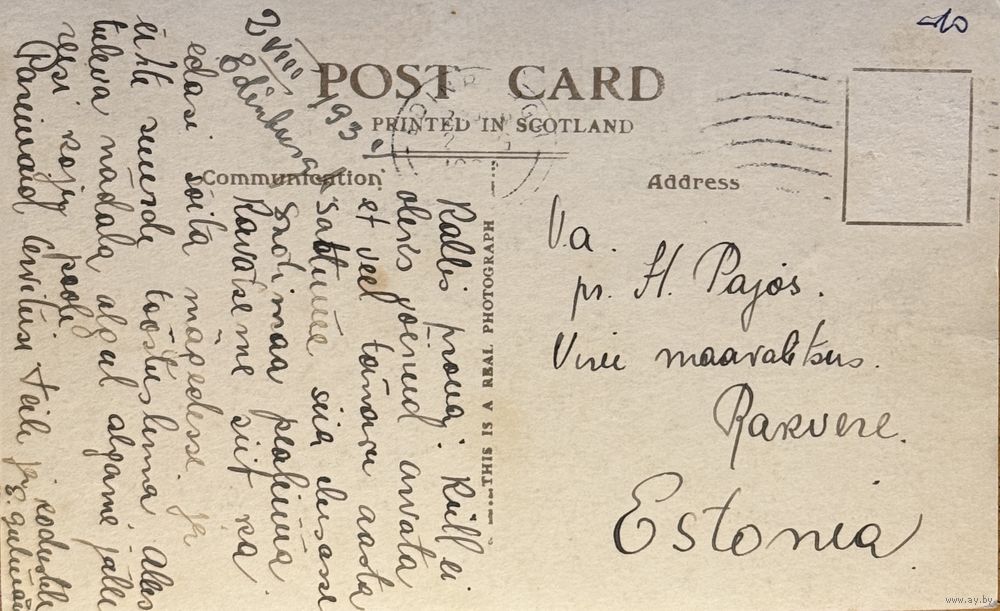 POST CARD
PRINTED IN SCOTLAND
Communication
Address
THIS IS A REAL PHOTOGRAPH
2 VIII 193
Edinburgh
Kallis proua! Küll ei
oleks võinud arvata
et veel tänavu aasta
satume siia ilusasse
Šotimaa pealinna
Kavatseme siit ka
edasi sõita mägedesse ja
ühte suurde tööstuslinna. Alles
tuleva nädala algul algame jälle
reisi koju poole
Parimaid tervitusi Teile ja kodustele
Va.
pr. H. Pajos.
Viru maavalitsus.
Rakvere.
Estonia
10
www.ay.by